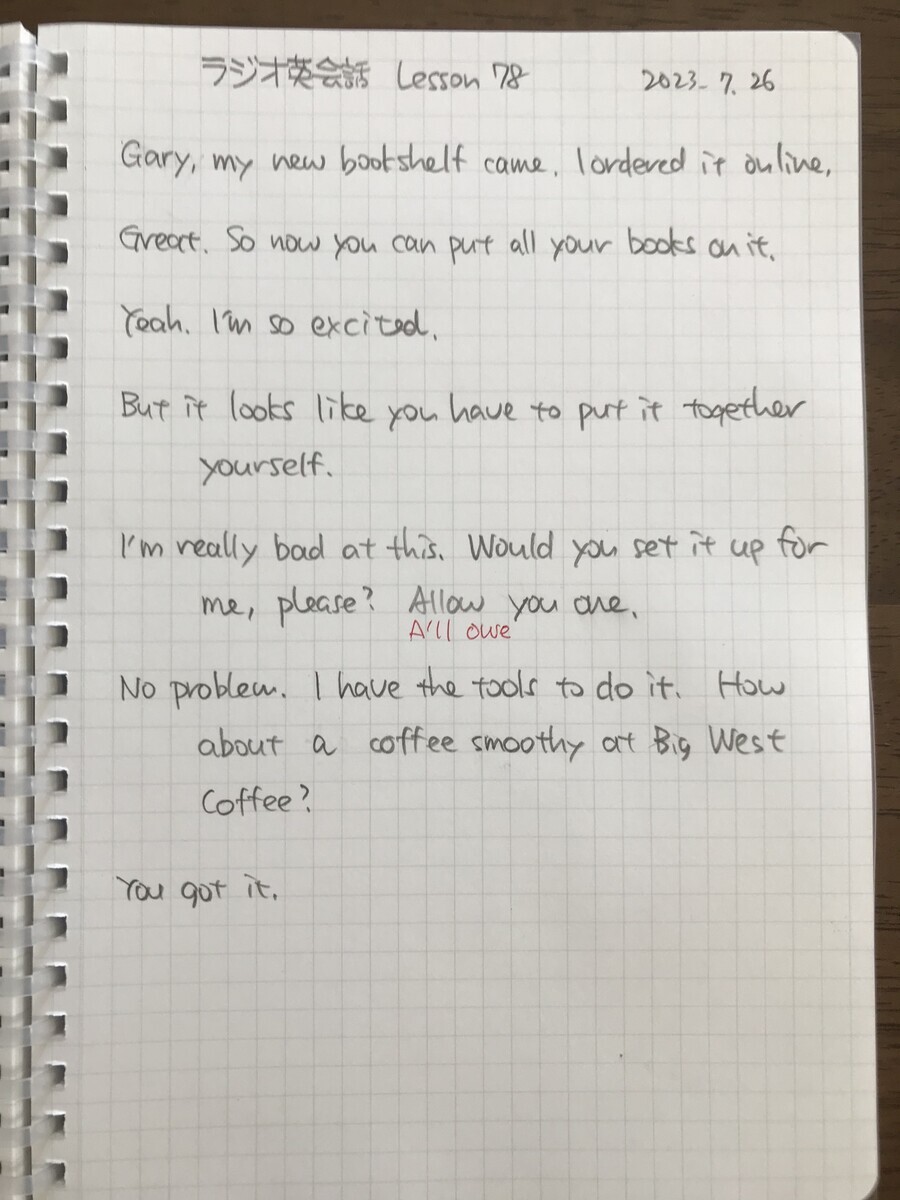 ラジオ英会話 Lesson 78 2023-7.26
Gary, my new bookshelf came. I ordered it online.
Great. So now you can put all your books on it.
Yeah. I'm so excited.
But it looks like you have to put it together
yourself.
I'm really bad at this. Would you set it up for
me, please? Allow you one.
A'll owe
No problem. I have the tools to do it. How
about a coffee smoothy at Big West
Coffee?
You got it.